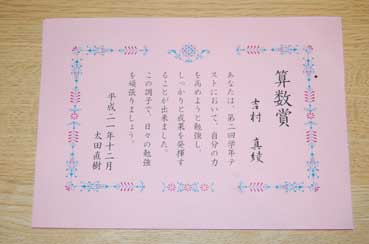 算数賞
吉村 真綾
あなたは、第二回学年テ
ストにおいて、自分の力
を高めようと勉強し、
しっかりと成果を発揮す
ることが出来ました。
この調子で、日々の勉強
を頑張りましょう。
平成二一年十二月
太田直樹